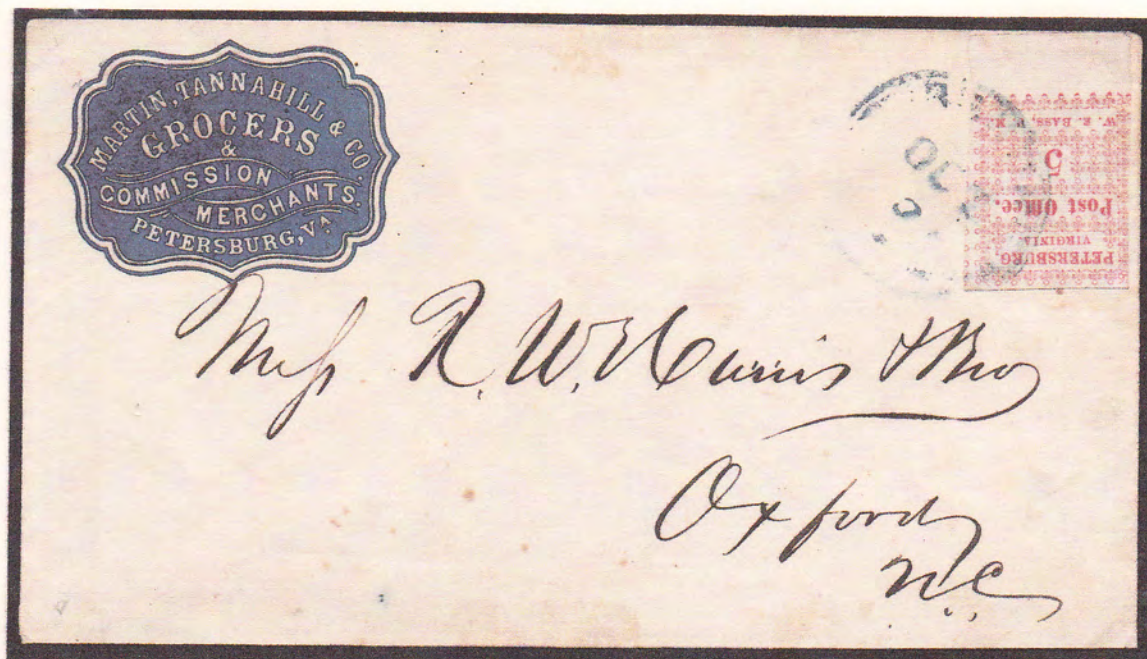 MARTIN, TANNAHILL & CO.
GROCERS
&
COMMISSION
MERCHANTS.
PETERSBURG, VA
OC
PETERSBURG,
VIRGINIA
Post Office.
5
W. E. BASS, P. M.
Mess R. W. Harris & Bro
Oxford
N.C.